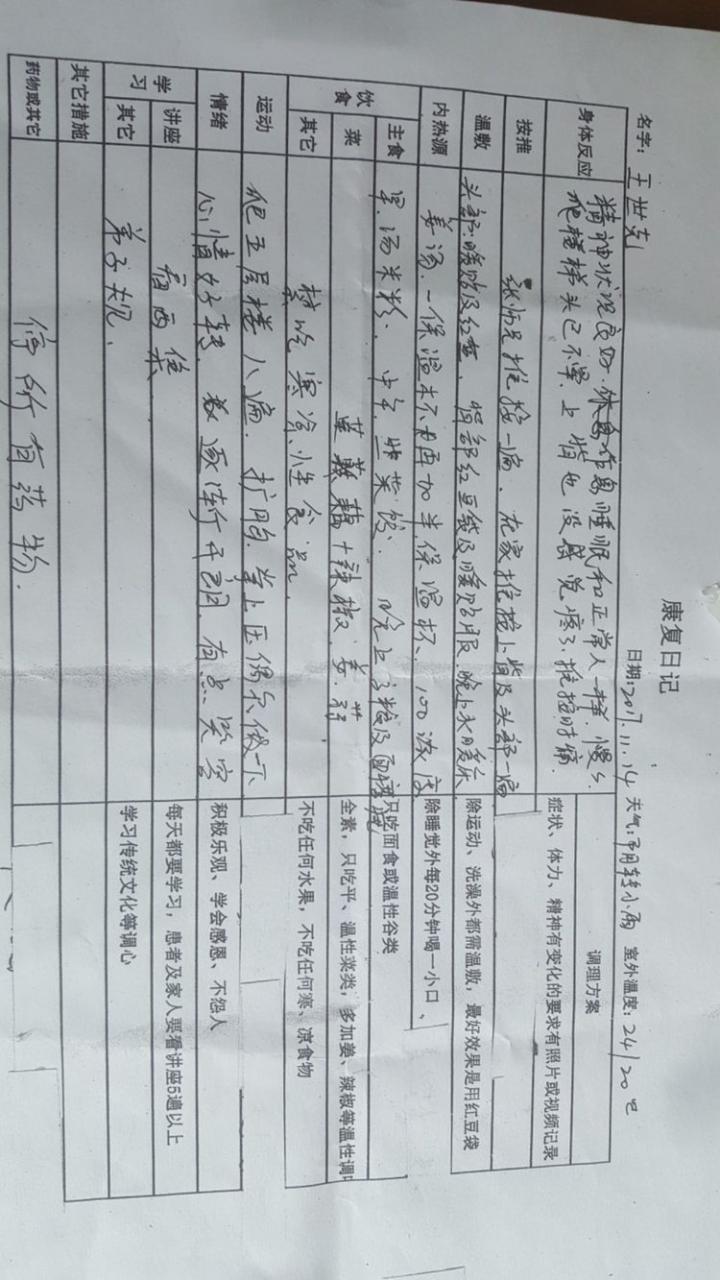 康复日记
名字：王世克 日期:2017.11.14 天气:多用转小雨 室外温度：24/20℃
调理方案
身体反应 精神状况良好.休息作息睡眠和正常人一样.慢慢
爬楼梯头已不晕.上背也没感觉疼了.推按时痛.
症状、体力、精神有变化的要求有照片或视频记录
按推 张师兄推按一遍.在家推按上背及头部一遍
温敷 头部:暖贴及红豆.背部红豆袋及暖贴.晚上水暖床
除运动、洗澡外都需温敷，最好效果是用红豆袋
内热源 姜汤.一保温杯不够再加半保温杯.100浓度
除睡觉外每20分钟喝一小口、
饮食 主食 早.汤米粉.中午.晚上
只吃面食或温性谷类
菜 十辣椒.姜.
全素，只吃平、温性菜类，多加姜、辣椒等温性调
其它 禁吃寒冷性食品.
不吃任何水果，不吃任何寒、凉食物
运动 爬五层楼八遍.扩胸.掌上压偶尔做一下
情绪 心情好转.逐渐开朗.有点笑容
积极乐观、学会感恩、不怨人
学习 讲座 看两集
每天都要学习，患者及家人要看讲座5遍以上
其它 弟子规.
学习传统文化等调心
其它措施
药物或其它 停所有药物.